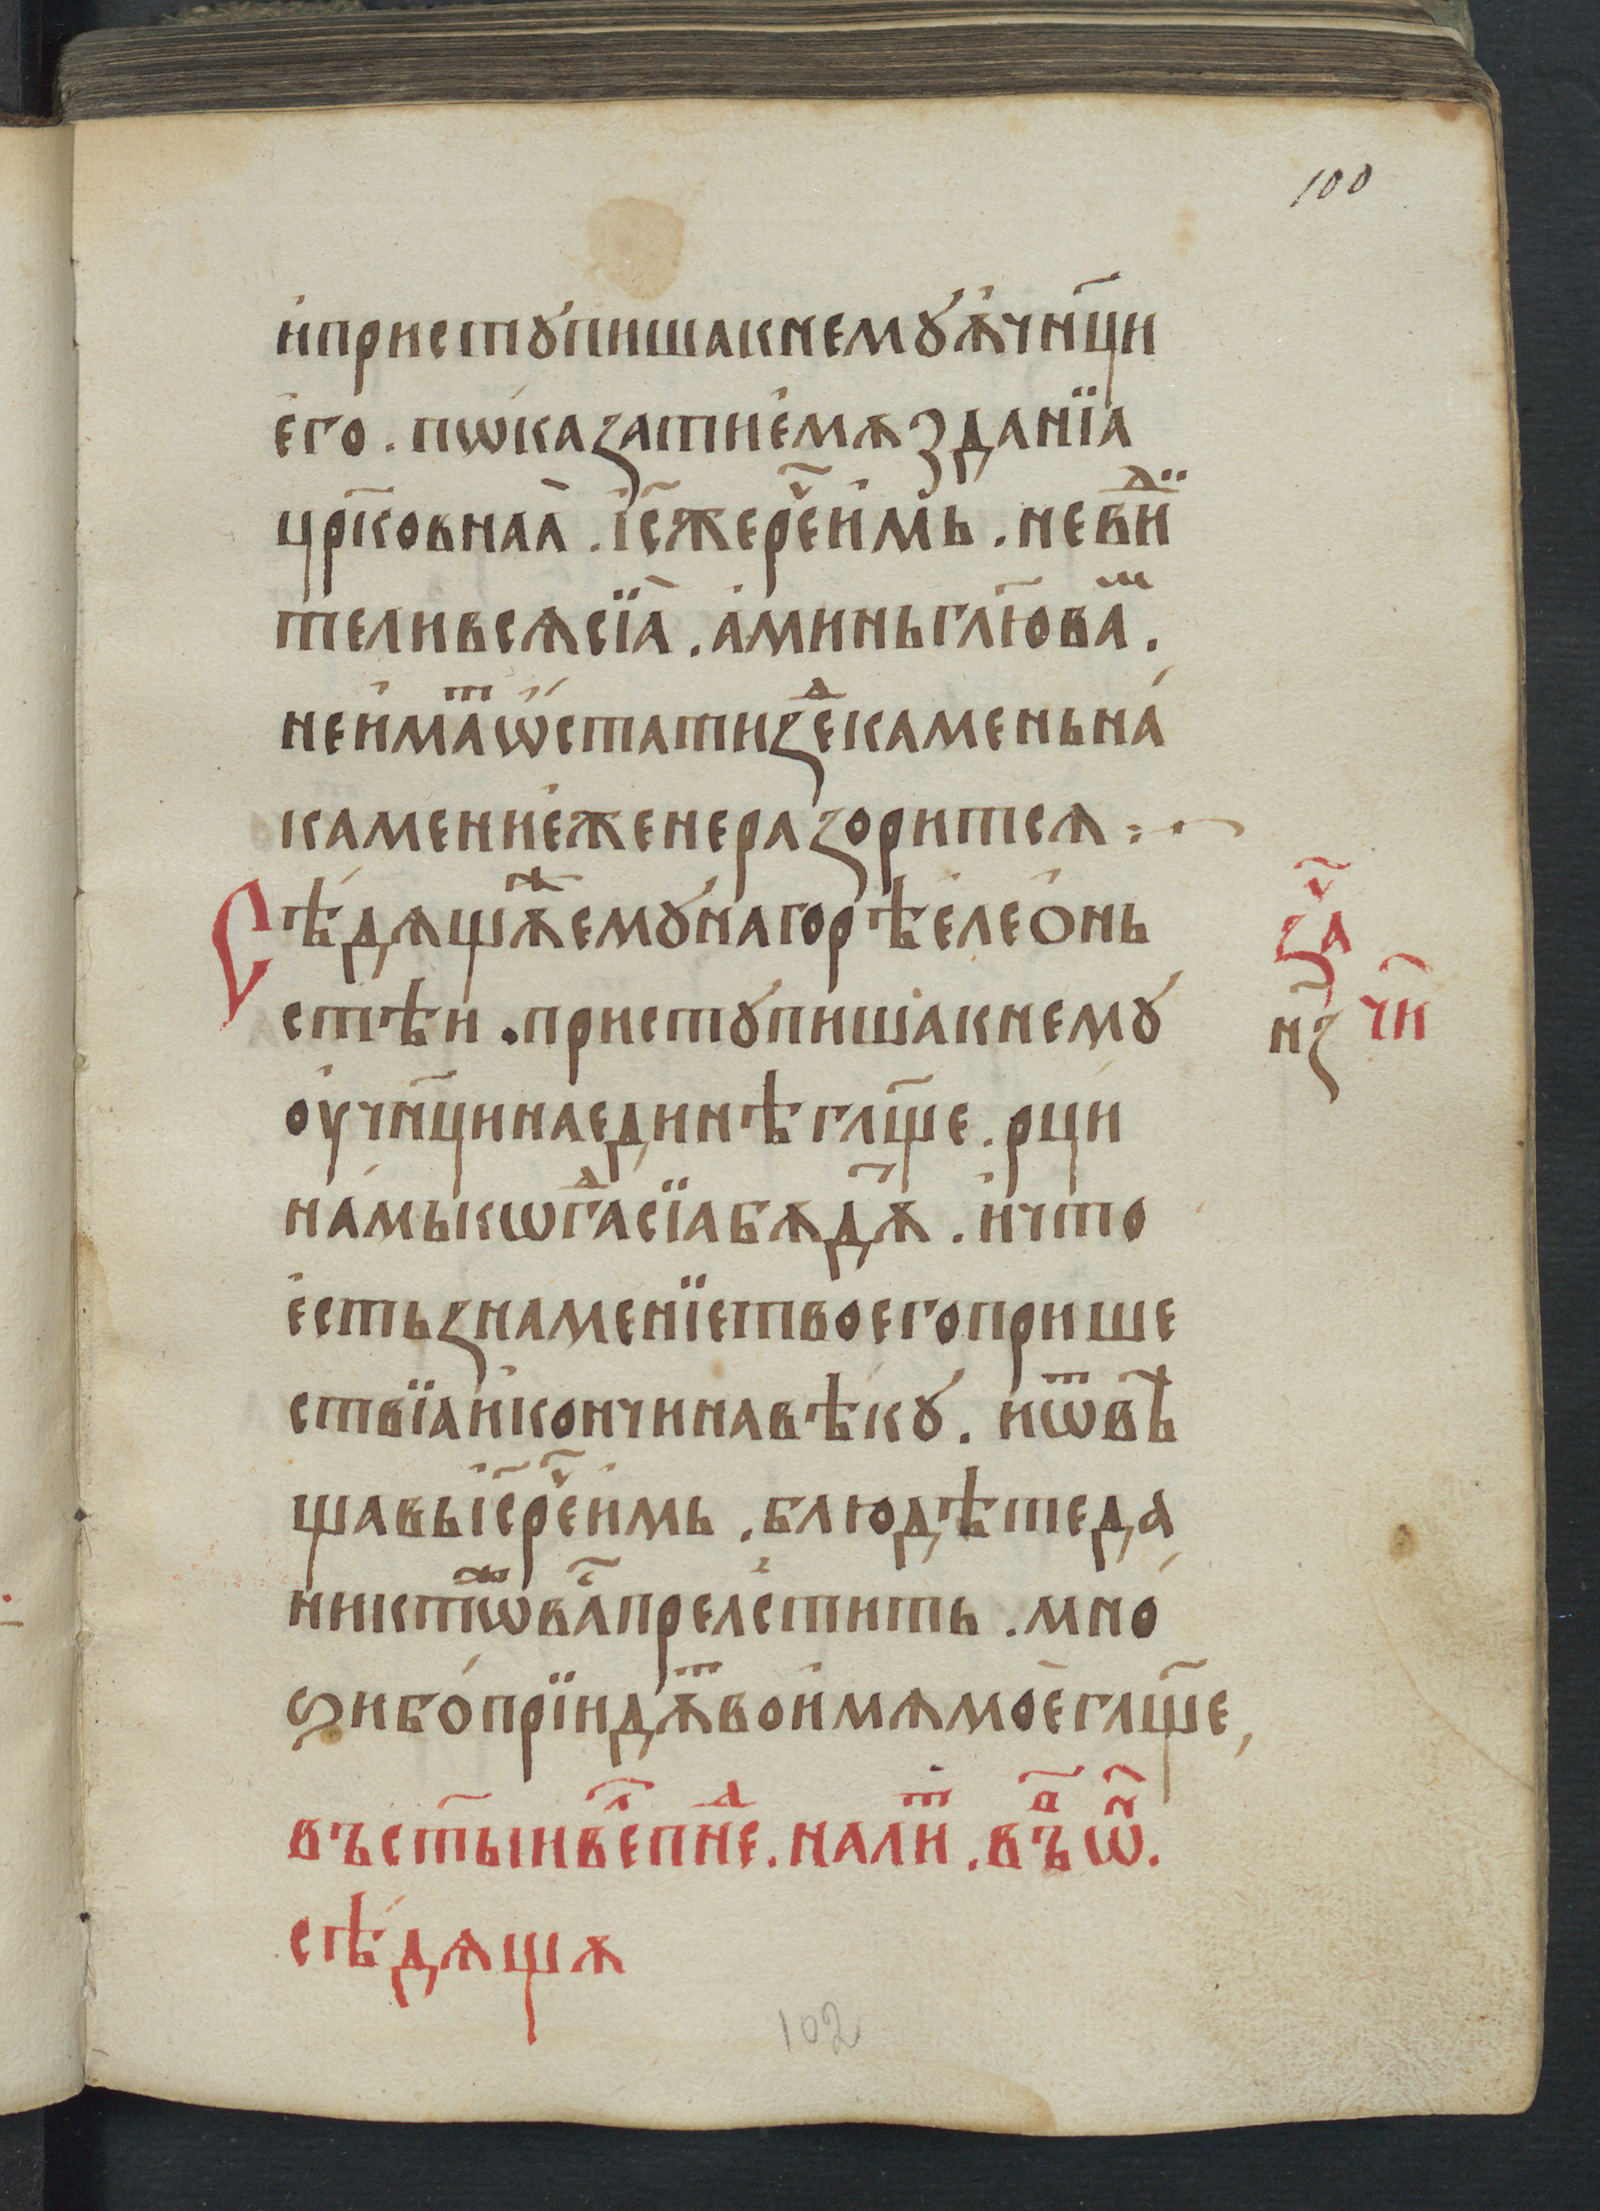 100
и҆пристꙋпишакнемꙋ́ѫ҆чн҃ци
е҆го . пѡ҆казатие҆мѫзданїа
цр҃ковнаа̀ . і҆с҃жереч҃еи҆мь . невⷣӥ
теливсѧсїа̀ . а҆миньгл҃ювⷨа .
неи҆мⷮаѡ҆статизⷣекаменьна́
камение҆женеразоритсѧ :·~
Сѣ́дѧщѫⷤемꙋ́нагорѣе҆лео҆нь
стѣи . пристꙋпишѧкнемꙋ́
оу҆чн҃цинаединѣгл҃ще . рци́
на́мькѡгⷣасїабѫдѫ҃ . и҆что
е҆стьзнаменїетвоегоприше
ствїаи҆кончинавѣкꙋ́ . иѿвѣ
щавьі҆с҃реч҃еи҆мь . блюдѣтеда
никтѡⷤвⷭапреле҆стить . мно́
ѕибо́прїидѫⷮвои҆мѧмоѐгл҃ще,
въст҃ыивⷧ҇епⷣне . налиⷮ . въⷣѡⷩ҇ .
сѣ́дѧщѫ
зⷱ҇а
нз҃ чи҃
102